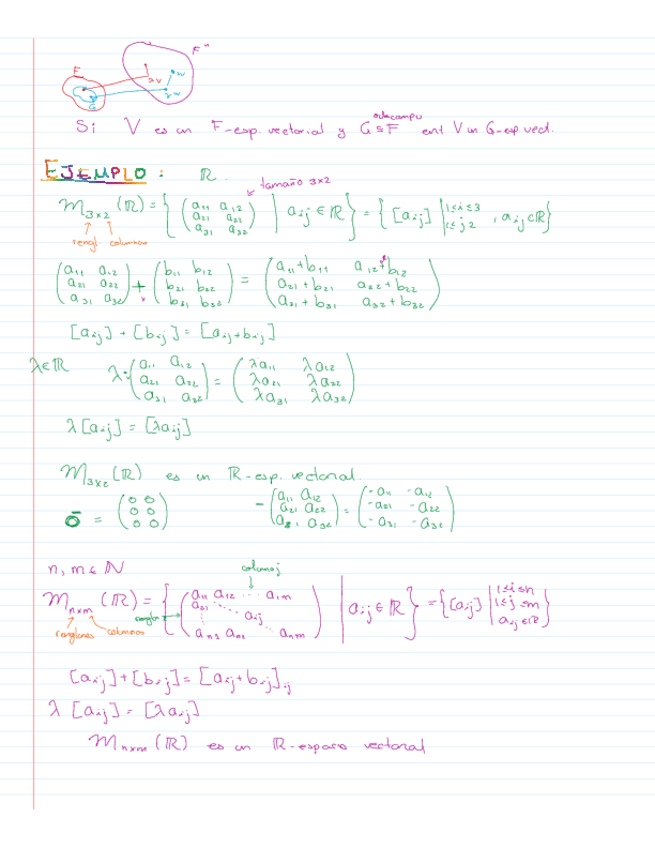 F F^n
λv w
G λw
subcampo
Si V es un F-esp. vectorial y G≤F ent V un G-esp vect.
EJEMPLO: ℝ.
tamaño 3x2
M_{3×2}(ℝ) = { ( a11 a12 / a21 a22 / a31 a32 ) | aij ∈ ℝ } = { [aij] | 1≤i≤3 / 1≤j 2 , aij∈ℝ }
rengl. columnas
( a11 a12 / a21 a22 / a31 a32 ) + ( b11 b12 / b21 b22 / b31 b32 ) = ( a11+b11 a12+b12 / a21+b21 a22+b22 / a31+b31 a32+b32 )
[aij] + [bij] = [aij+bij]
λ∈ℝ λ·( a11 a12 / a21 a22 / a31 a32 ) = ( λa11 λa12 / λa21 λa22 / λa31 λa32 )
λ[aij] = [λaij]
M_{3×2}(ℝ) es un ℝ-esp. vectorial.
ō = ( 0 0 / 0 0 / 0 0 ) -( a11 a12 / a21 a22 / a31 a32 ) = ( -a11 -a12 / -a21 -a22 / -a31 -a32 )
n, m ∈ ℕ columna j
M_{n×m}(ℝ) = { ( a11 a12 ... a1m / a21 ... aij / an1 an2 anm ) | aij ∈ ℝ } = { [aij] | 1≤i≤n / 1≤j≤m / aij∈ℝ }
renglones columnas
[aij]+[bij] = [aij+bij]ij
λ [aij] = [λaij]
M_{n×m}(ℝ) es un ℝ-espacio vectorial